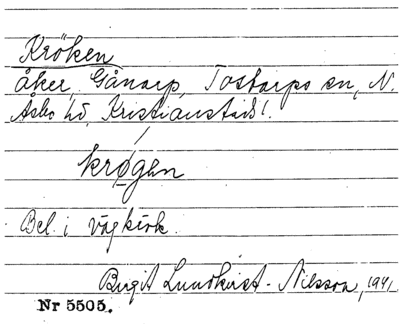 Kröken
åker, Gånarp, Tostarps sn, N.
Asbo hd, Kristianstads l.
krø̱gen
Bel. i vägkrök.
Birgit Lundkvist-Nilsson, 1941.
Nr 5505.